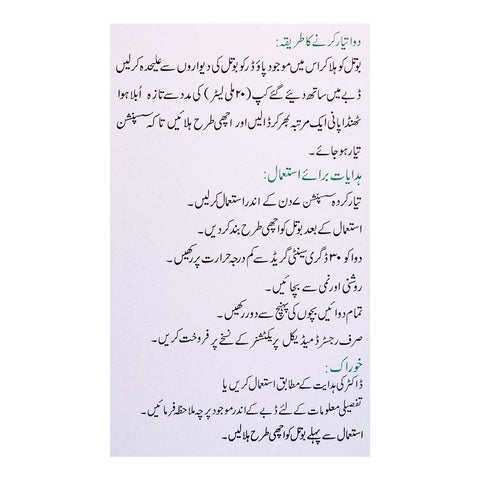 دوا تیار کرنے کا طریقہ:
بوتل کو ہلا کر اس میں موجود پاؤڈر کو بوتل کی دیواروں سے علیحدہ کرلیں
ڈبے میں ساتھ دیئے گئے کپ (۲۰ ملی لیٹر) کی مدد سے تازہ اُبلا ہوا
ٹھنڈا پانی ایک مرتبہ بھر کر ڈالیں اور اچھی طرح ہلائیں تاکہ سسپنشن
تیار ہو جائے۔
ہدایات برائے استعمال:
تیار کردہ سسپنشن ۷ دن کے اندر استعمال کرلیں۔
استعمال کے بعد بوتل کو اچھی طرح بند کردیں۔
دوا کو ۳۰ ڈگری سینٹی گریڈ سے کم درجہ حرارت پر رکھیں۔
روشنی اور نمی سے بچائیں۔
تمام دوائیں بچوں کی پہنچ سے دور رکھیں۔
صرف رجسٹرڈ میڈیکل پریکٹشنر کے نسخے پر فروخت کریں۔
خوراک:
ڈاکٹر کی ہدایت کے مطابق استعمال کریں یا
تفصیلی معلومات کے لئے ڈبے کے اندر موجود پرچہ ملاحظہ فرمائیں۔
استعمال سے پہلے بوتل کو اچھی طرح ہلالیں۔